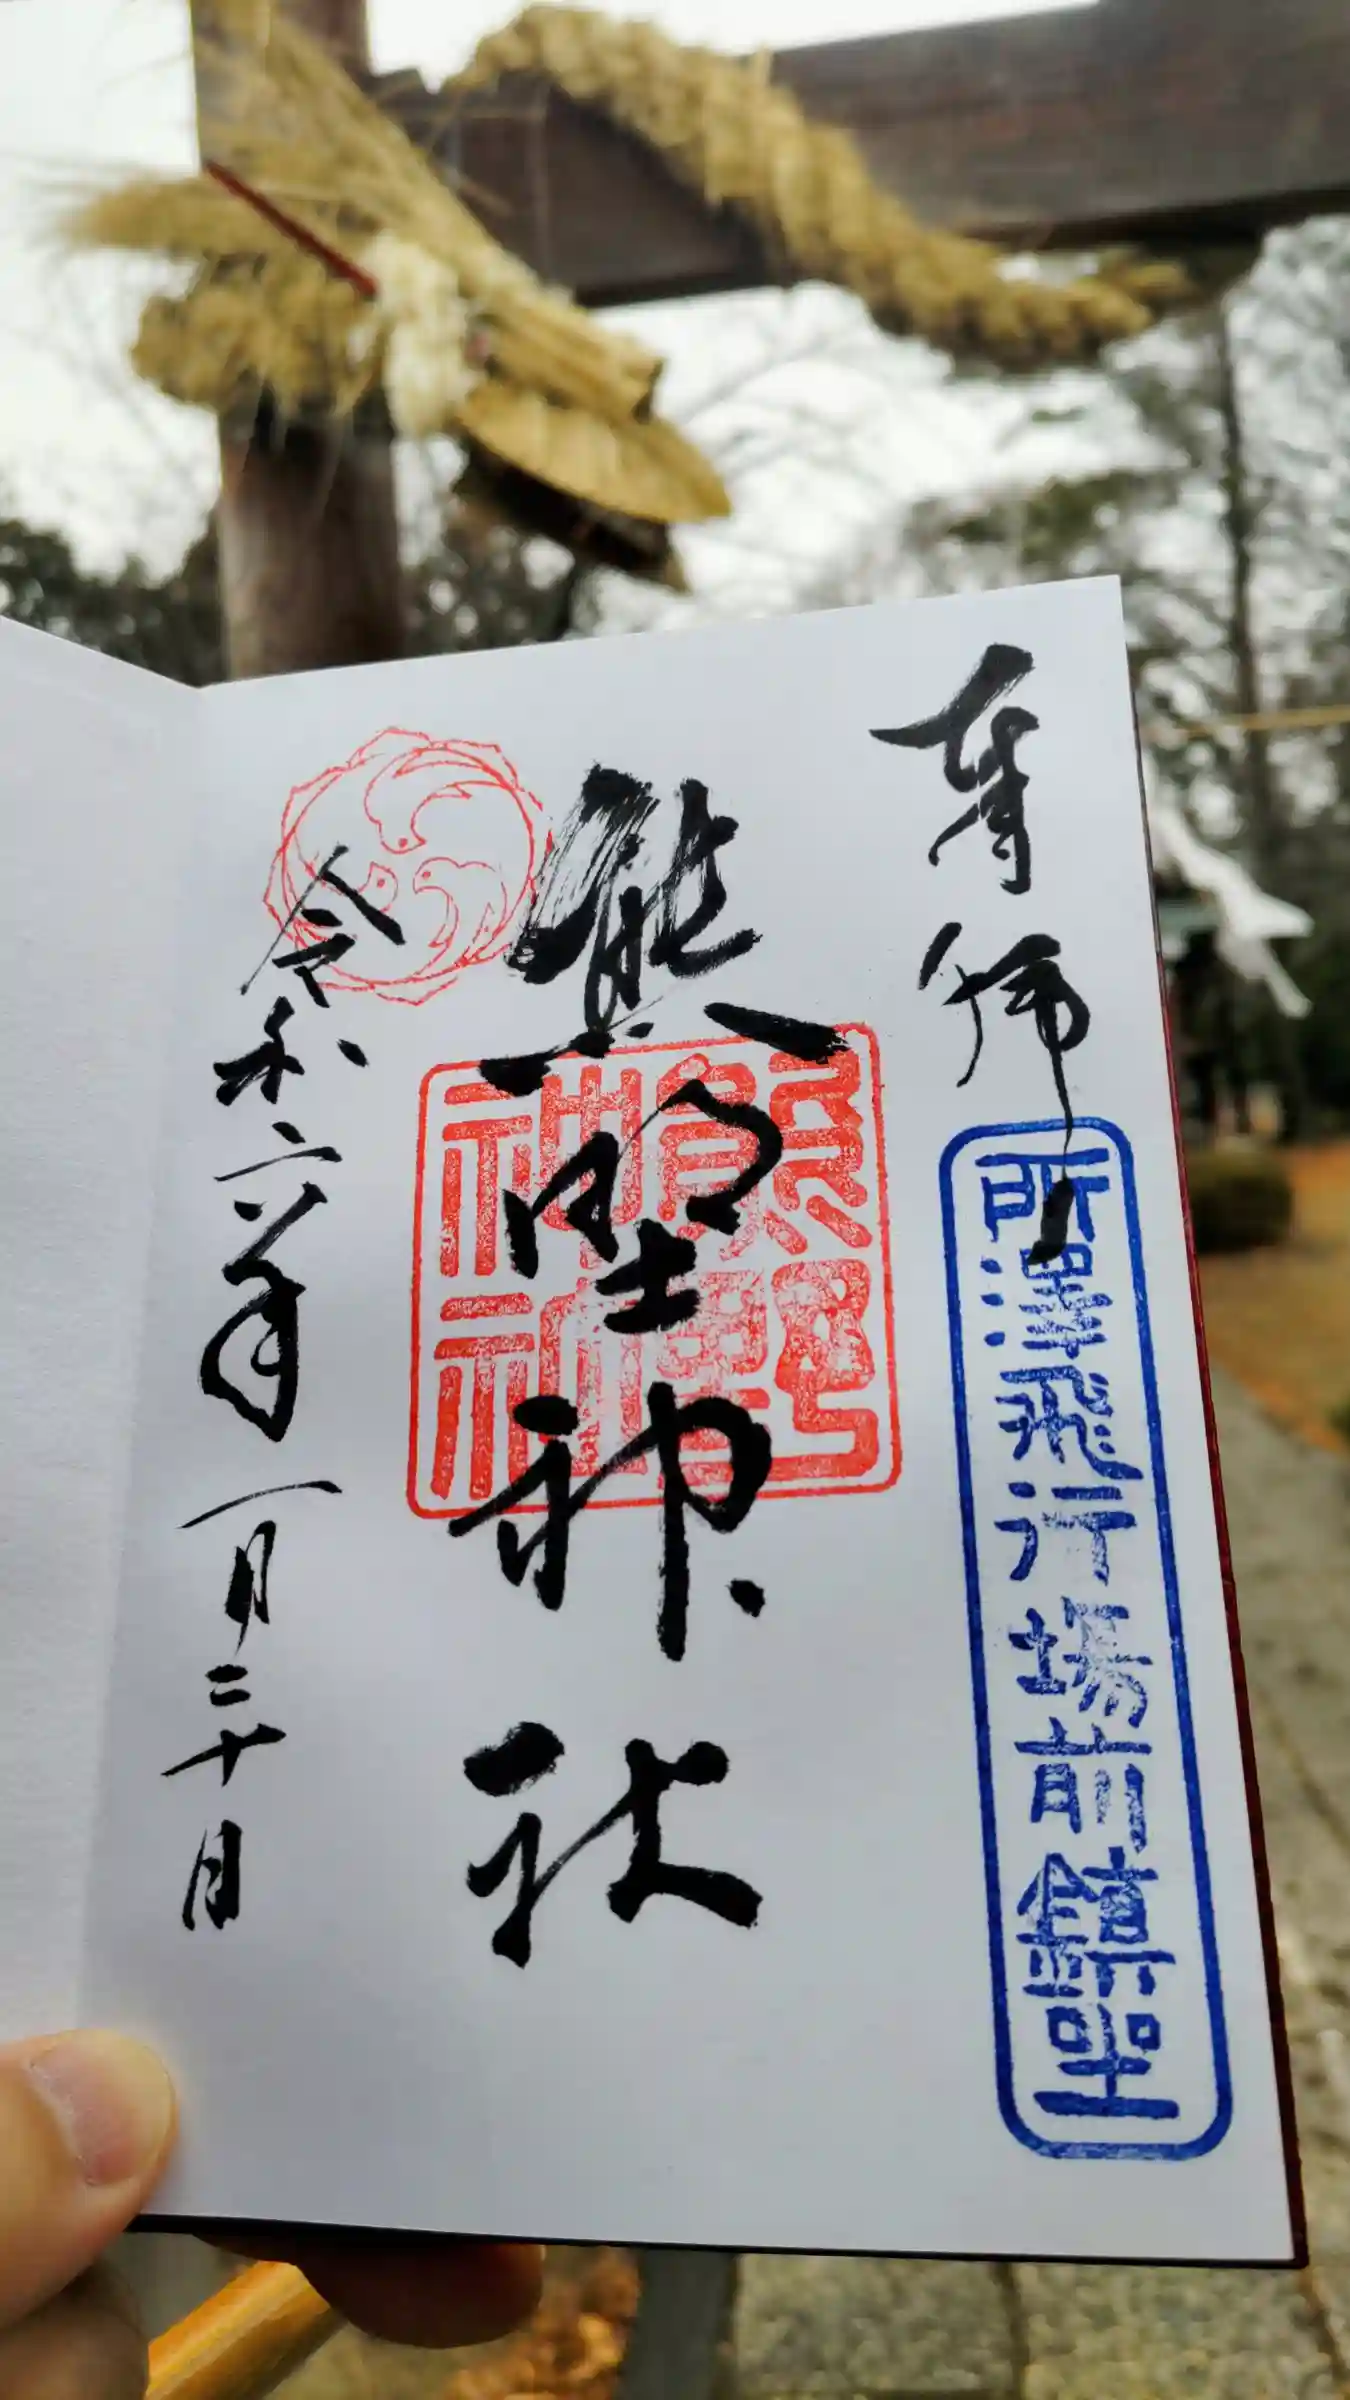 奉拝
所澤飛行場前鎮座
熊野神社
熊野
神社
令和六年一月二十日